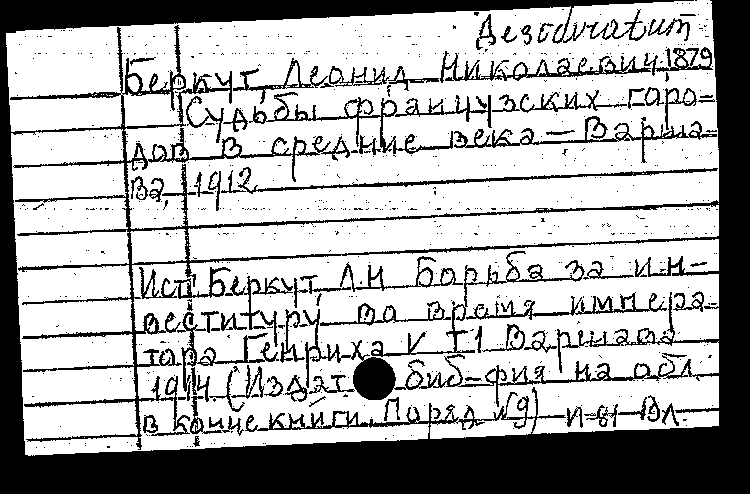 Desideratum
Беркут, Леонид Николаевич, 1879
Судьбы французских горо-
дов в средние века — Варша-
ва, 1912
Ист. Беркут, Л.Н Борьба за ин-
веституру во время импера-
тора Генриха V Т1 Варшава
1914 (Издат. биб-фия на обл.
в конце книги. Поряд. №9) Вл.